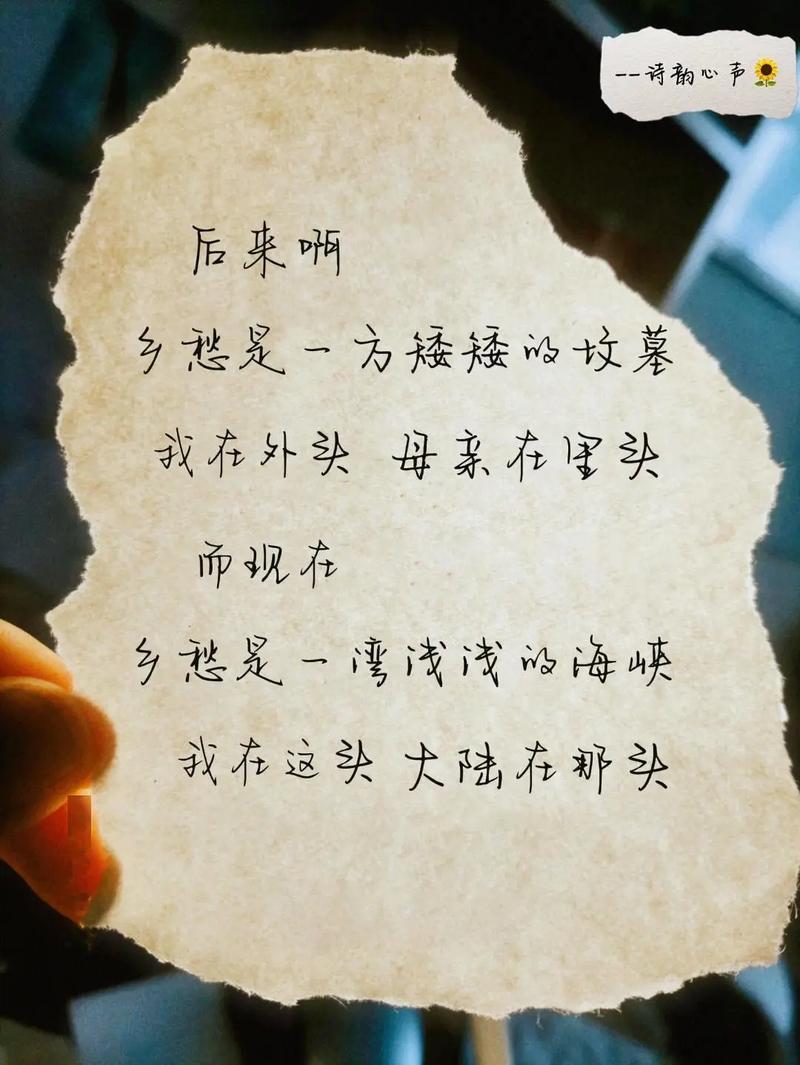 --诗韵心声🌻
后来啊
乡愁是一方矮矮的坟墓
我在外头 母亲在里头
而现在
乡愁是一湾浅浅的海峡
我在这头 大陆在那头